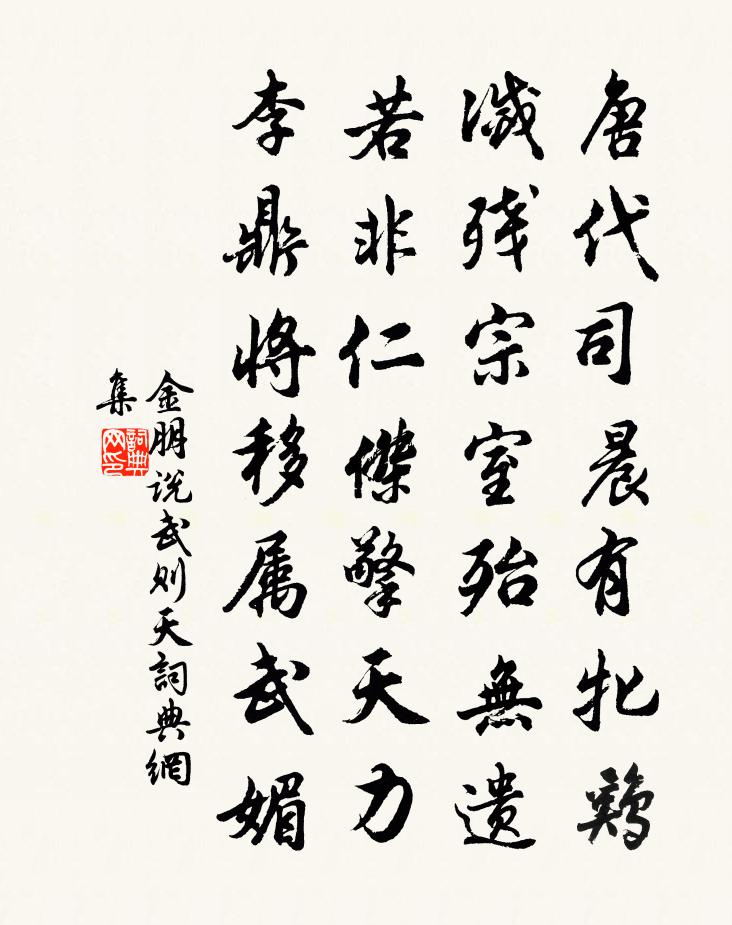 唐代司晨有牝鷄
滅残宗室殆無遺
若非仁傑擎天力
李鼎将移属武媚
金朋说武则天詞典網
集
詞典網印